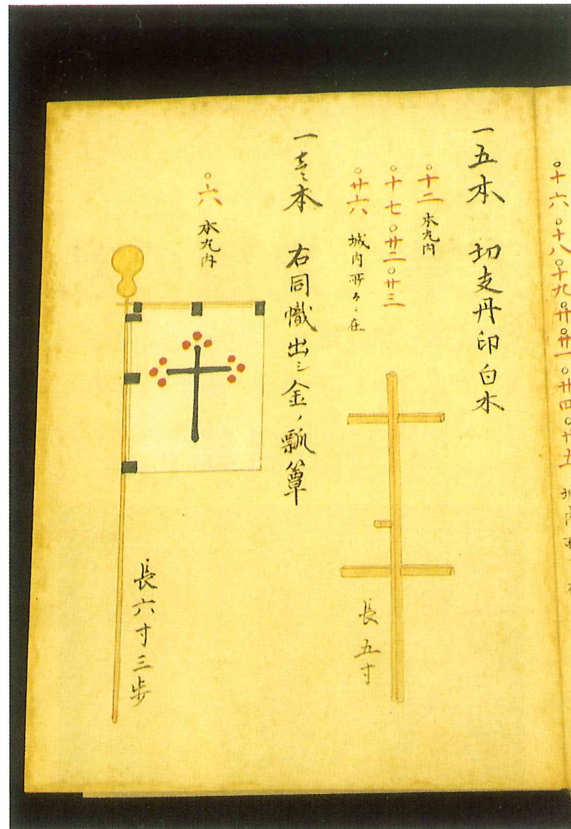 ○十六○十八○十九○廿○廿一○廿四○廿五
一五本 切支丹印白木
○十二 本丸内
○十七○廿二○廿三
○廿六 城内所々ニ在
長五寸
一壱本 右同幟出シ金ノ瓢簞
○六 本丸内
長六寸三歩